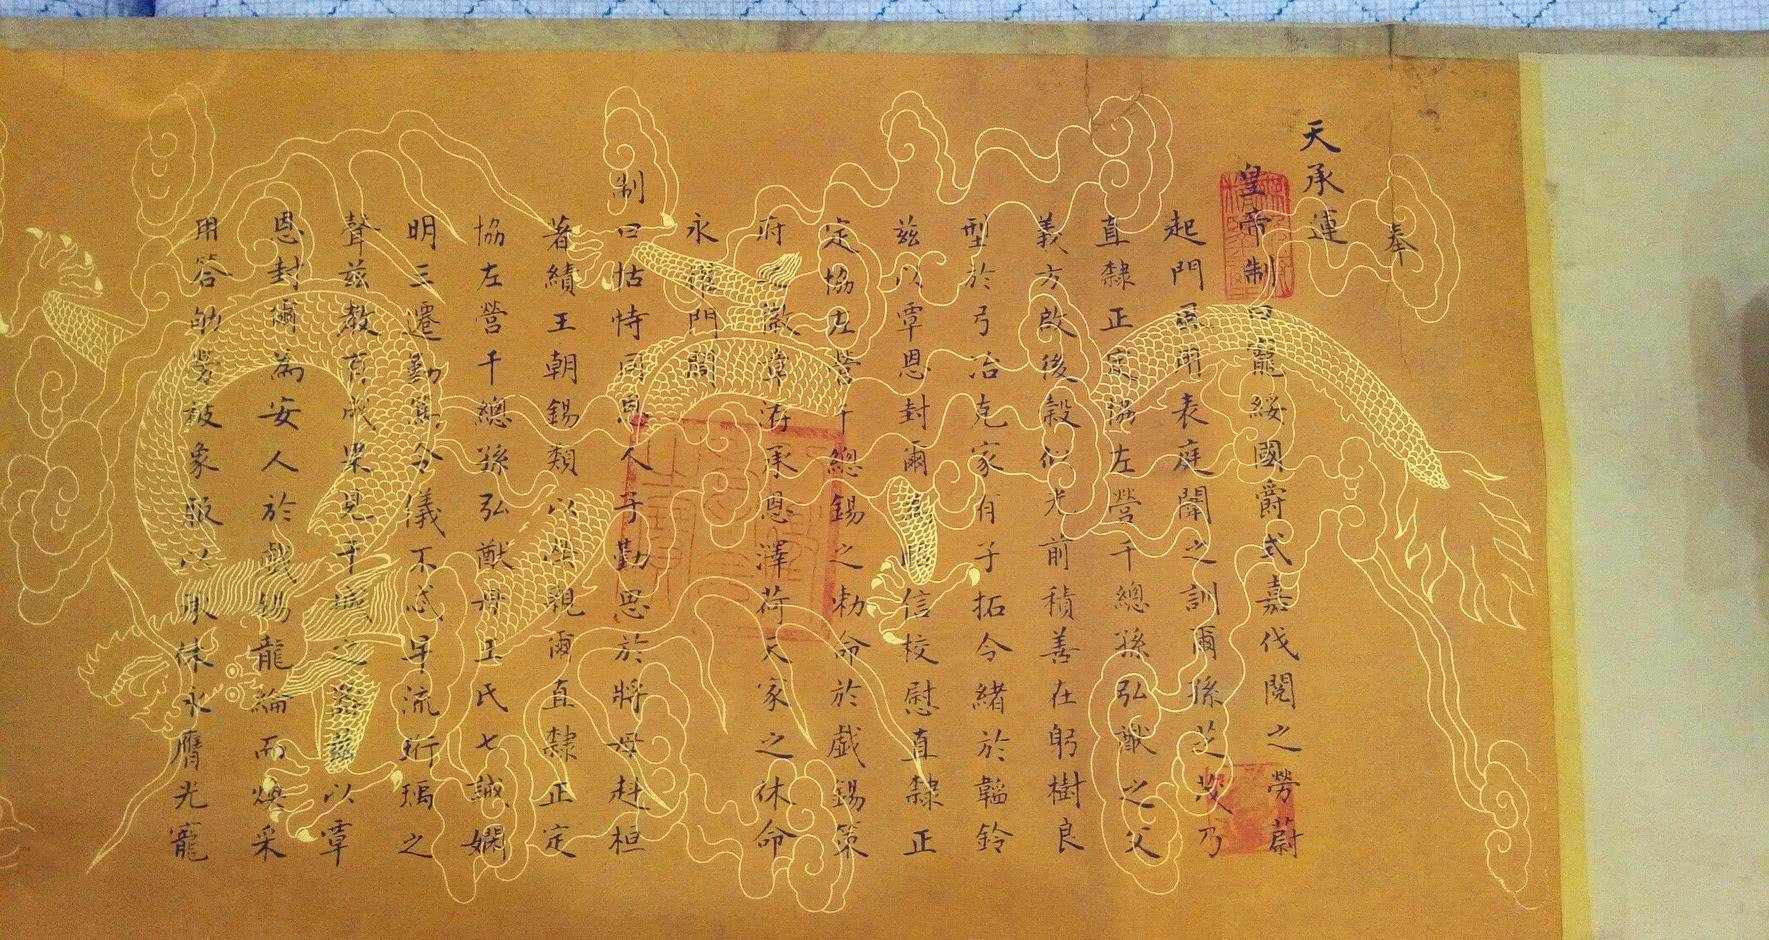 奉
天承運
皇帝制曰寵綏國爵式嘉伐閱之勞蔚
起門閭用表庭闈之訓爾孫芝茂乃
直隸正定協左營千總孫弘猷之父
義方啟後穀似光前積善在躬樹良
型於弓冶克家有子拓令緒於韜鈴
茲以覃恩封爾為 信校慰直隸正
定協左營千總錫之勅命於戲錫策
府之徽章洊承恩澤荷天家之休命
永 門閭
制曰怙恃同恩人子勤思於將母赳桓
著績王朝錫類以榮親爾直隸正定
協左營千總孫弘猷母王氏七誡嫻
明三遷勤篤令儀不忒早流珩瑀之
聲茲教有成果見干城之器茲以覃
恩封爾為安人於戲錫龍綸而煥采
用答劬勞被象服以承休永膺光寵